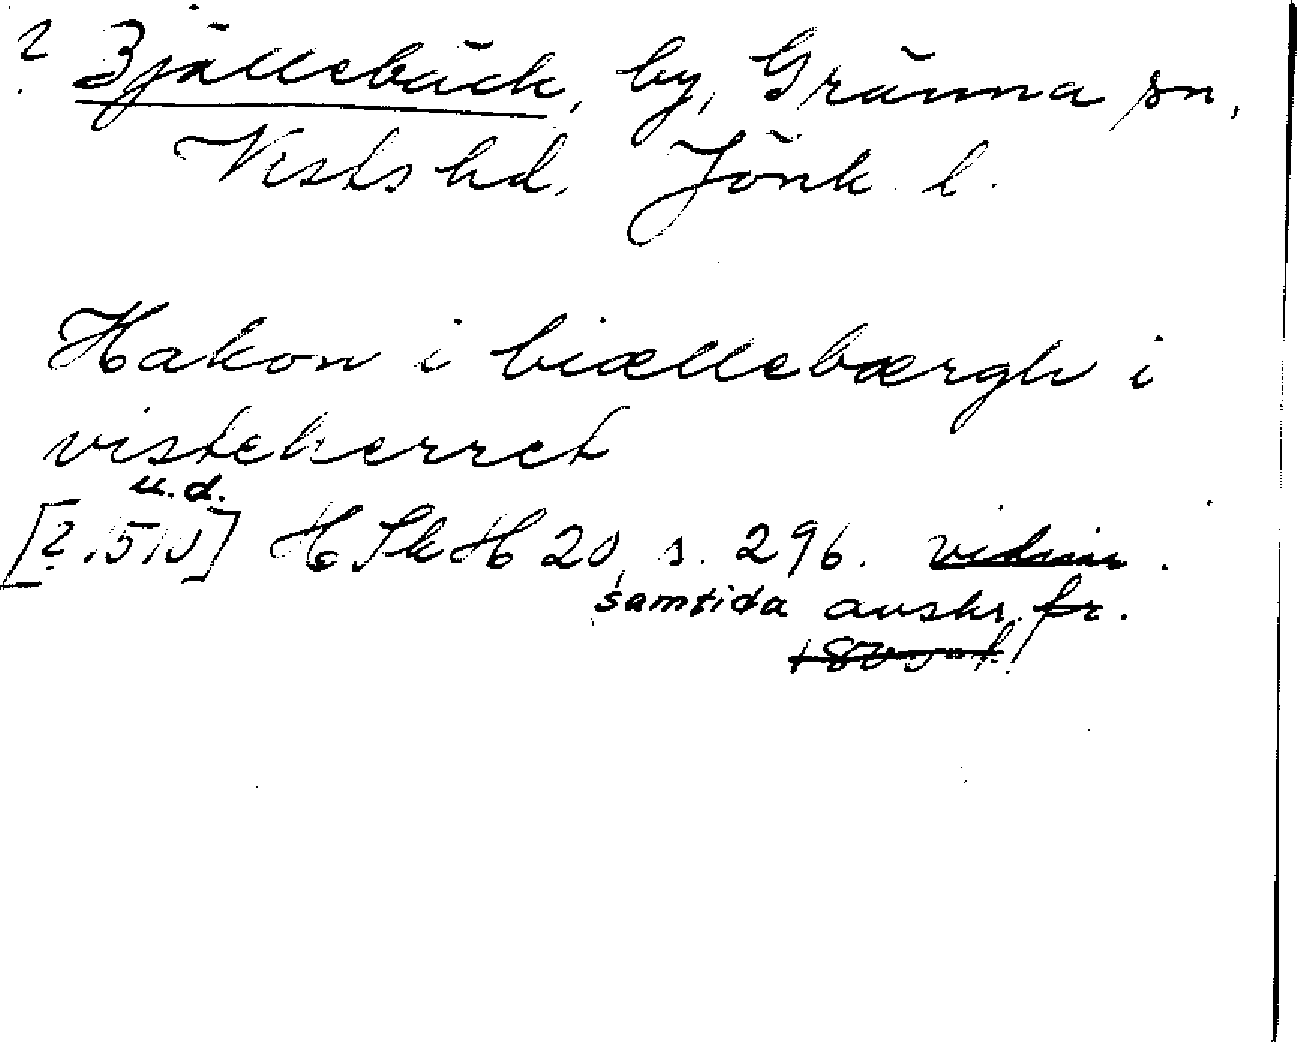 ? Bjällebäck, by, Gränna sn,
Vists hd. Jönk. l.
Hakon i biællebærgh i
visteherret
u.d.
[? 1510] HSkH 20, s. 296. vidim.
samtida avskr. fr.